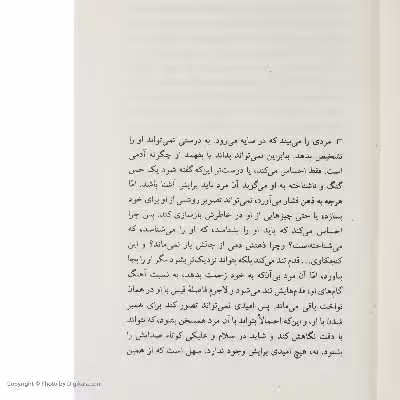 ۳ مردی را می‌بیند که در سایه می‌رود. به درستی نمی‌تواند او را
تشخیص بدهد. بنابراین نمی‌تواند بداند یا بفهمد او چگونه آدمی
است. فقط احساس می‌کند، یا درست‌تر این‌که گفته شود یک حس
گنگ و ناشناخته به او می‌گوید آن مرد باید برایش آشنا باشد. امّا
هرچه به ذهن فشار می‌آورد، نمی‌تواند تصویر روشنی از او برای خود
بسازد، یا حتی چیزهایی از او در خاطرش بازسازی کند. پس چرا
احساس می‌کند که باید او را بشناسد، که او را می‌شناسد، که
می‌شناخته‌ست؟ و چرا ذهنش دمی از چالش باز نمی‌ماند؟ و این
کنجکاوی... قدم تند می‌کند بلکه بتواند نزدیک‌تر بشود مگر او را بجا
بیاورد، امّا آن مرد بی‌آن‌که به خود زحمت بدهد، به نسبت آهنگ
گام‌های او، قدم‌هایش تند می‌شود و لاجرم فاصلهٔ قیس با او در همان
نواخت باقی می‌ماند. پس امیدی نمی‌تواند تصور کند برای همبر
شدن با او، و این‌که احتمالاً بتواند با آن مرد همسخن بشود، که بتواند
با دقت نگاهش کند و شاید در سلام و علیکی کوتاه صدایش را
بشنود. نه، هیچ امیدی برایش وجود ندارد. سهل است که از همین
Copyright © Photo by Digikala.com